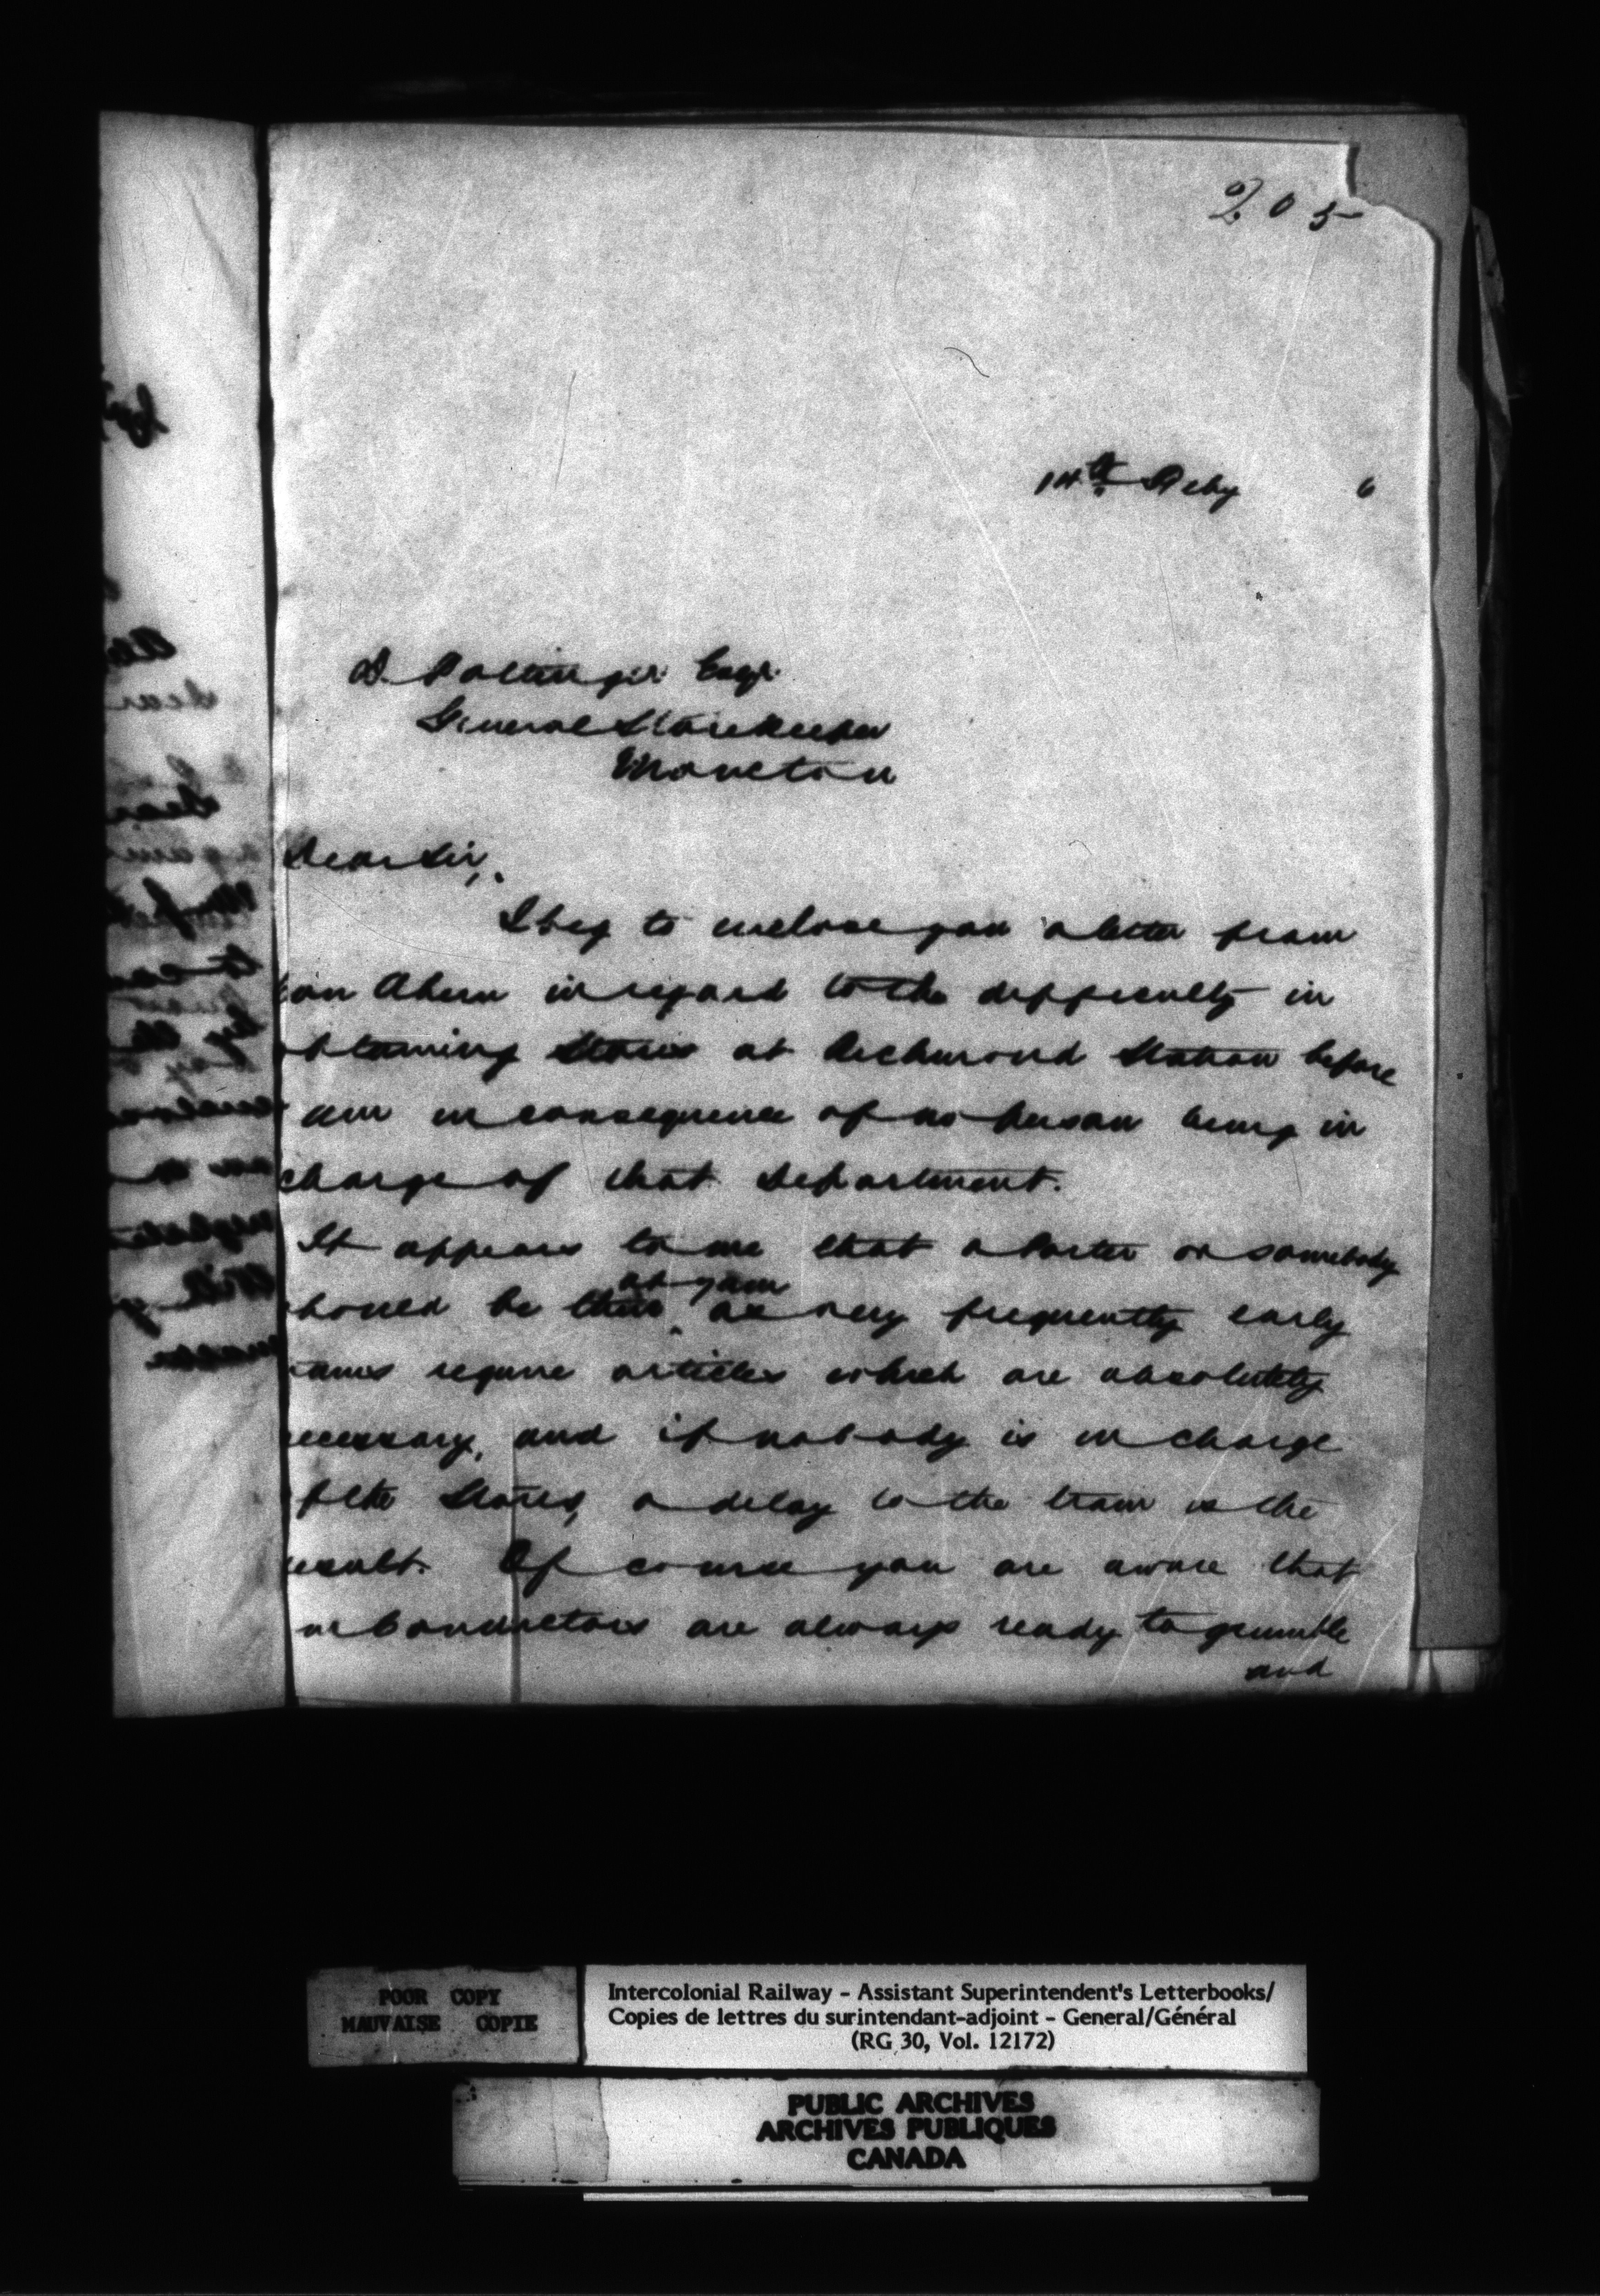 205
14th Feby 6
D. Pottinger Esqr.
General Storekeeper
Moncton
Dear Sir,
I beg to enclose you a letter from
Ahern in regard to the difficulty in
obtaining Stores at Richmond Station before
am in consequence of no person being in
charge of that Department.
It appears to me that a Porter or somebody
should be there at 7 am as very frequently early
trains require articles which are absolutely
necessary, and if nobody is in charge
of the Stores, a delay to the train is the
result. Of course you are aware that
our Conductors are always ready to grumble
and
POOR COPY
MAUVAISE COPIE
Intercolonial Railway - Assistant Superintendent's Letterbooks/
Copies de lettres du surintendant-adjoint - General/Général
(RG 30, Vol. 12172)
PUBLIC ARCHIVES
ARCHIVES PUBLIQUES
CANADA